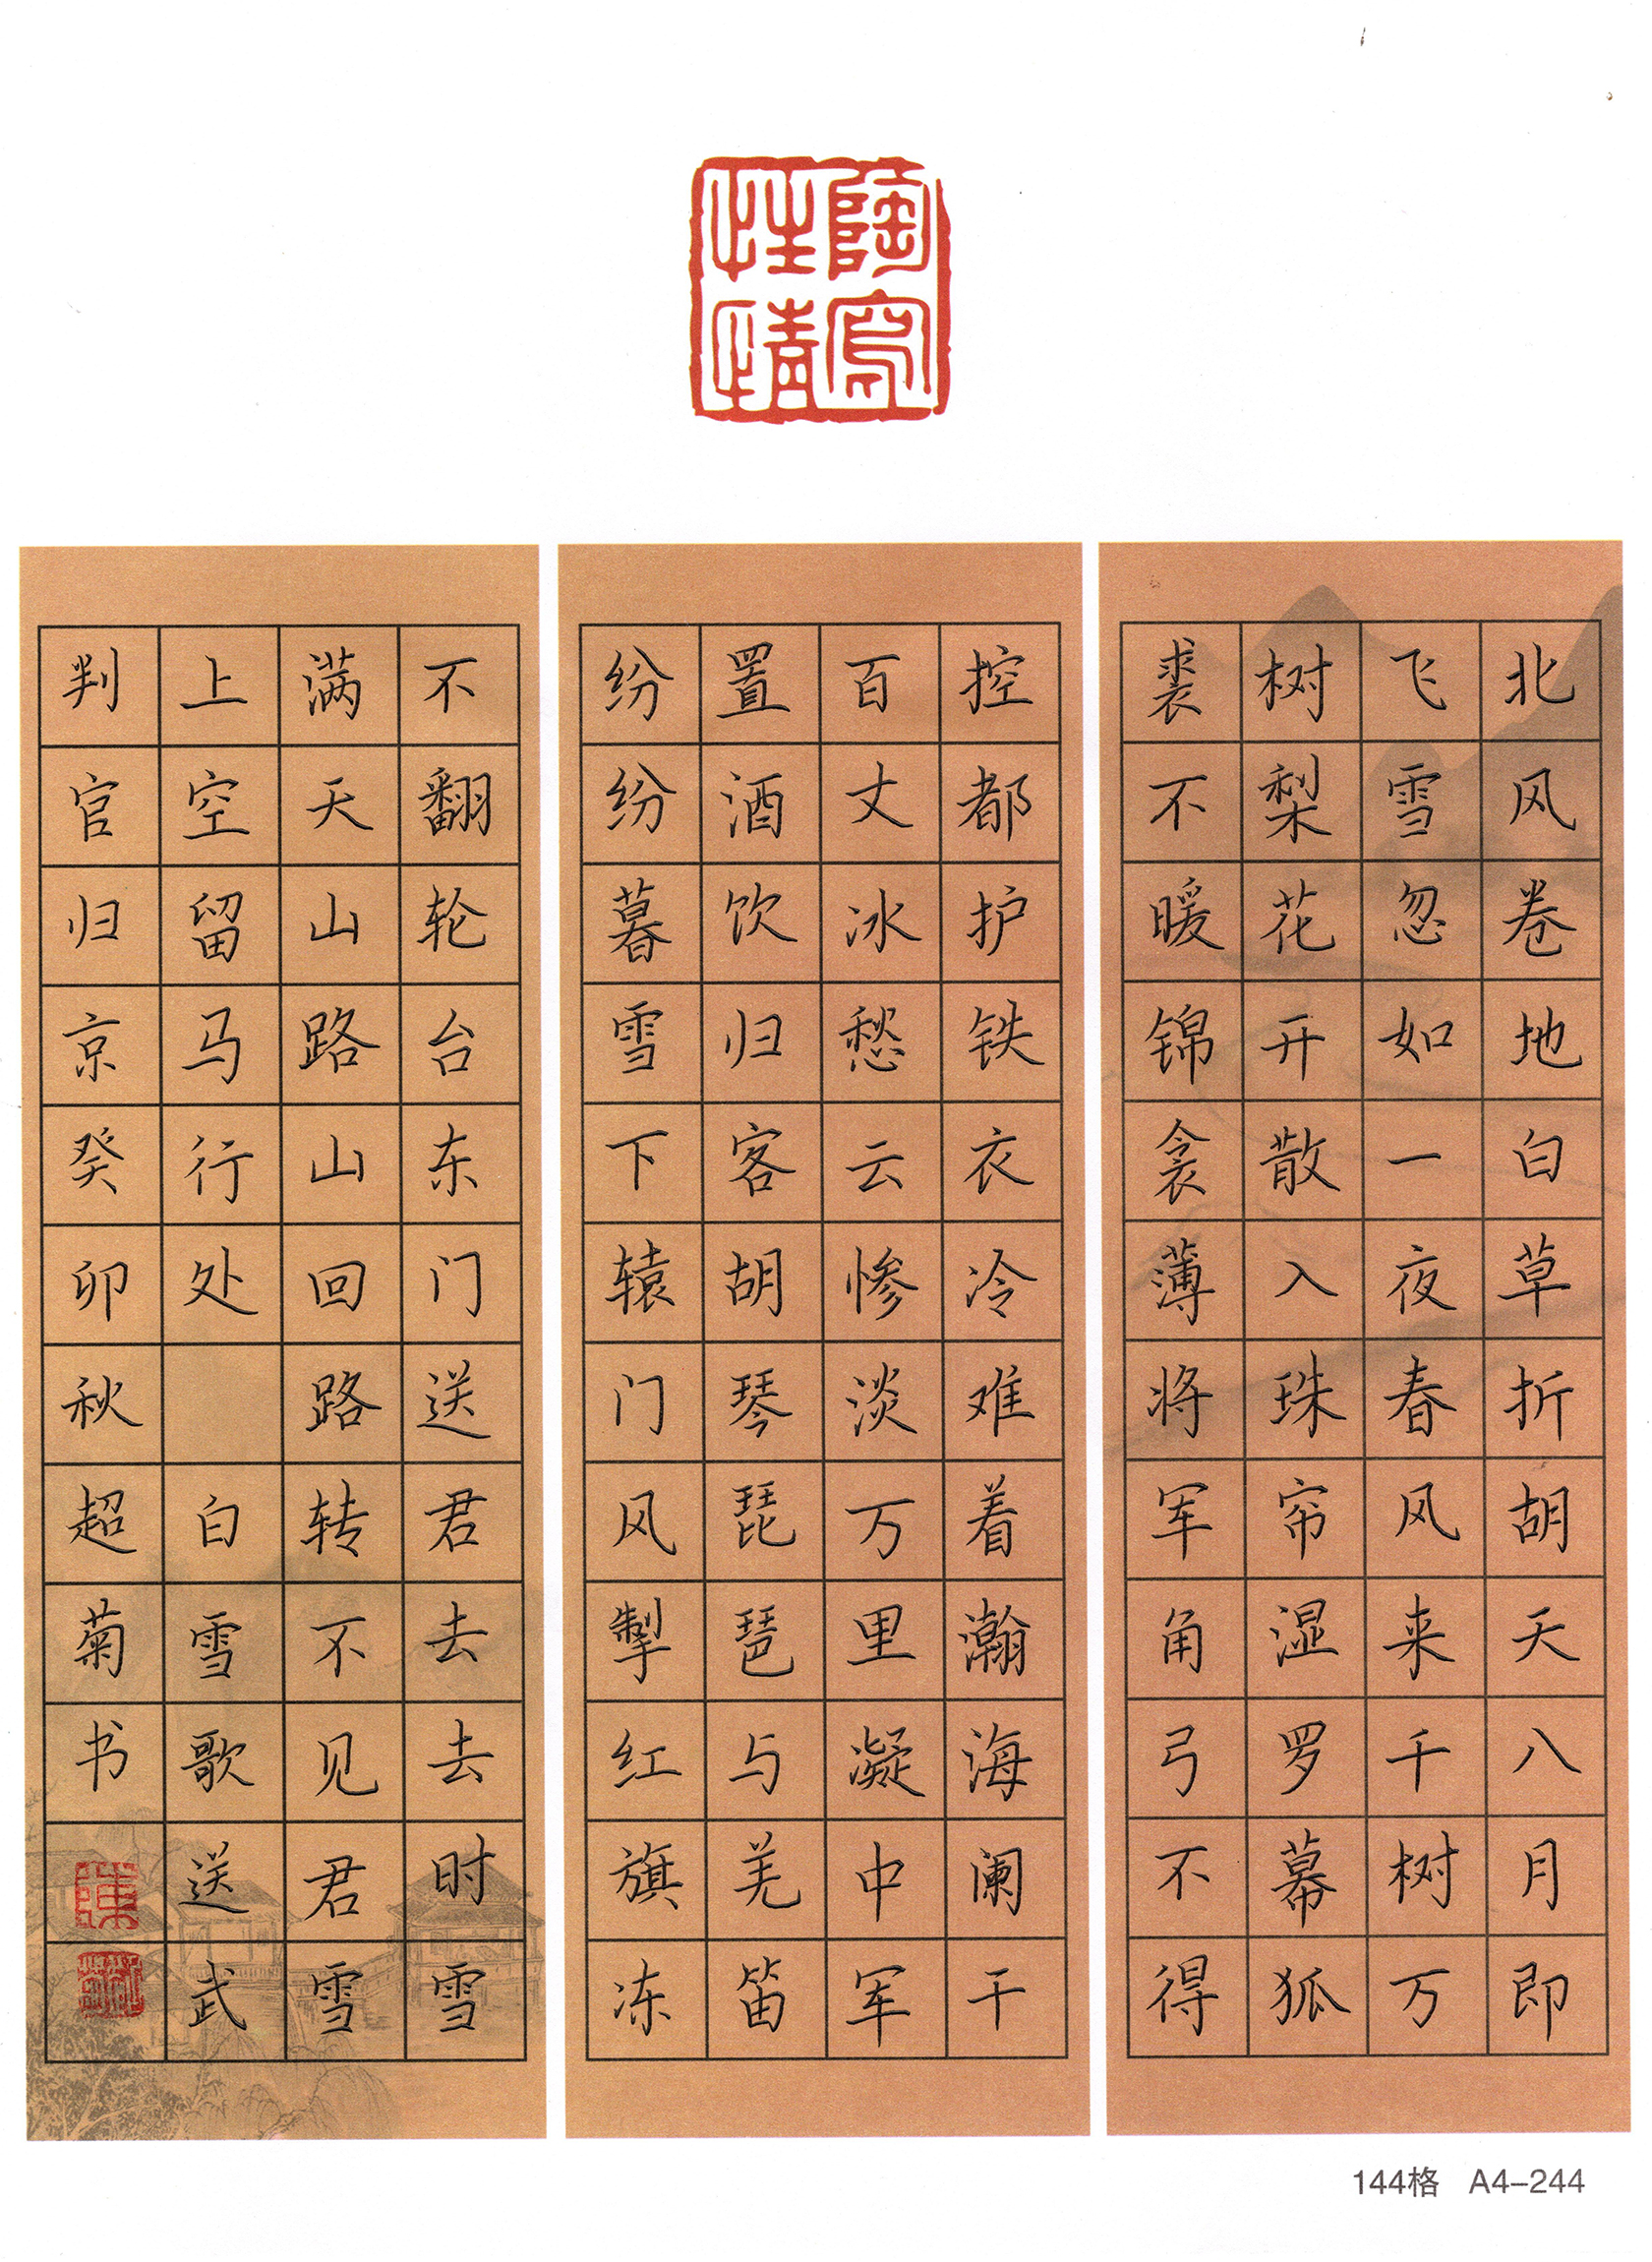 陶寫
性情
北风卷地白草折胡天八月即
飞雪忽如一夜春风来千树万
树梨花开散入珠帘湿罗幕狐
裘不暖锦衾薄将军角弓不得
控都护铁衣冷难着瀚海阑干
百丈冰愁云惨淡万里凝中军
置酒饮归客胡琴琵琶与羌笛
纷纷暮雪下辕门风掣红旗冻
不翻轮台东门送君去去时雪
满天山路山回路转不见君雪
上空留马行处 白雪歌送武
判官归京癸卯秋超菊书
陳
144格 A4-244